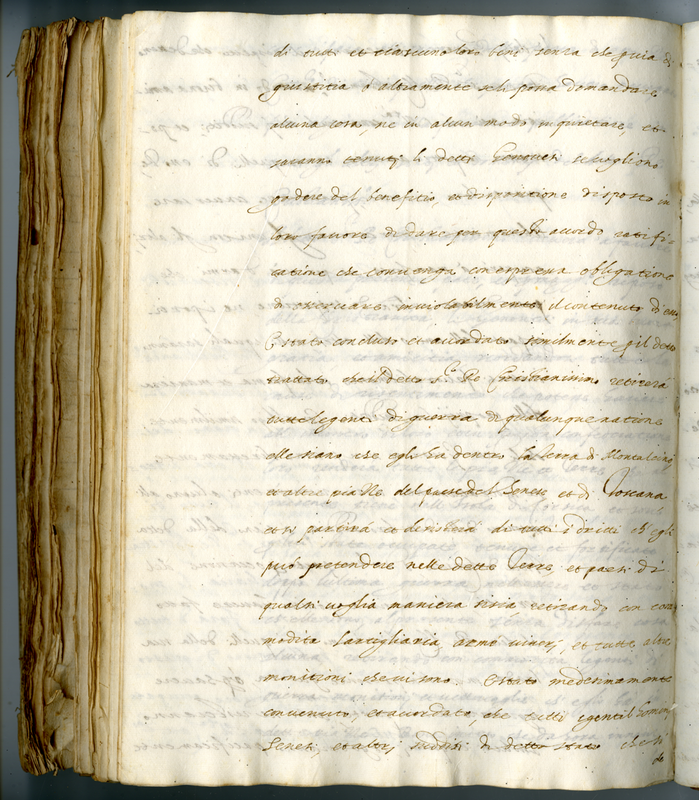 di tutti et ciascuno loro beni senza che per via di
giustitia ò altramente seli possa domandare
alcuna cosa, ne in alcun modo inquietare, et
saranno tenuti li detti Genovesi se vogliono
godere del beneficio, et dispositione disposto in
loro favore di dare per questo accordo ratifi
catione che convenga con espressa obligatione
di osservare inviolabilmente il contenuto di esso
È stato concluso et accordato similmente p il detto
trattato che il detto S.r Re Christianissimo retirerà
tutte le genti di guerra di qualunque natione
elle siano che egli ha dentro la terra di Montalcino
et altre piazze del paese del Senese et di Toscana
et si partirà et desisterà di tutti i dritti ch'egli
può pretendere nelle dette Terre, et paesi di
qualsi voglia maniera si sia retirando con com
modità l'artigliaria, arme viveri, et tutte altre
monitioni che vi sono. È stato medesimamente
convenuto, et accordato, che tutti i gentil homeni
Senesi, et altri sudditi di detto stato che si